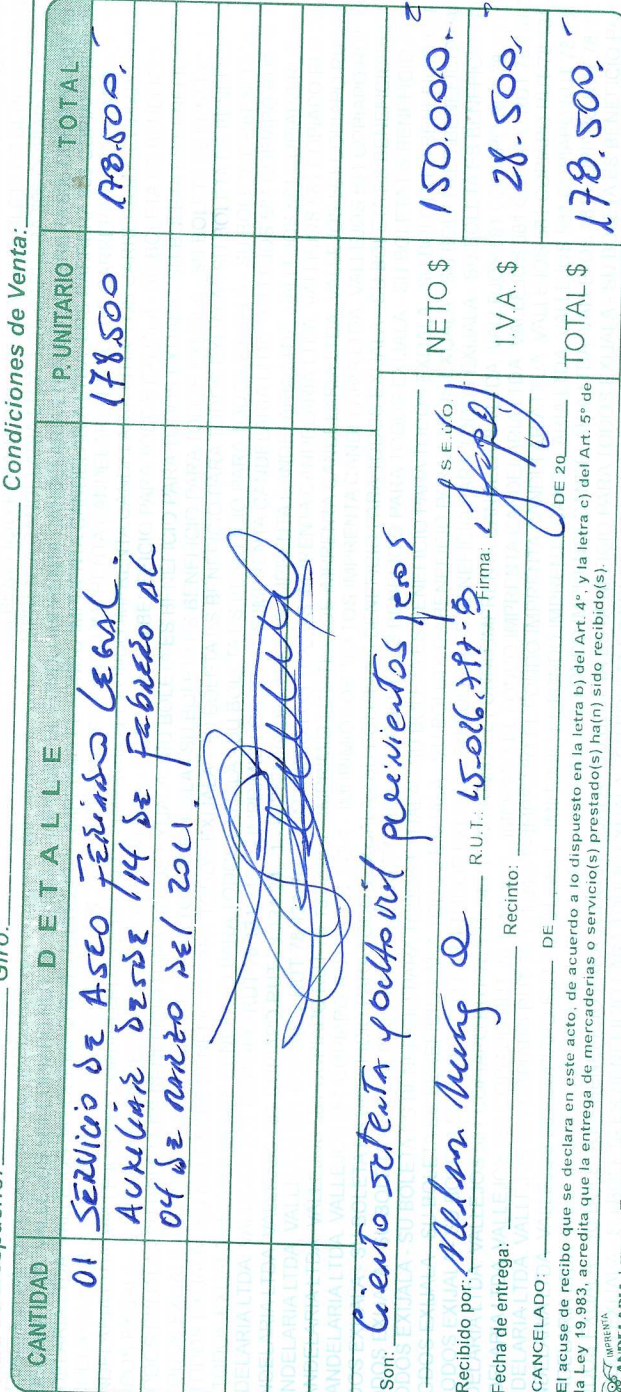 Condiciones de Venta:
CANTIDAD DETALLE P. UNITARIO TOTAL
01 SERVICIO DE ASEO FERIADO LEGAL. 178.500 178.500.-
AUXILIAR DESDE 14 DE FEBRERO AL
04 DE MARZO DEL 2011.
Son: Ciento setenta y ocho mil quinientos pesos
S.E.U.O.
NETO $ 150.000.-
Recibido por: Nelson R.U.T.: Firma:
I.V.A. $ 28.500,-
Fecha de entrega: Recinto:
CANCELADO: DE DE 20
TOTAL $ 178.500.-
El acuse de recibo que se declara en este acto, de acuerdo a lo dispuesto en la letra b) del Art. 4°, y la letra c) del Art. 5° de
la Ley 19.983, acredita que la entrega de mercaderías o servicio(s) prestado(s) ha(n) sido recibido(s).
IMPRENTA